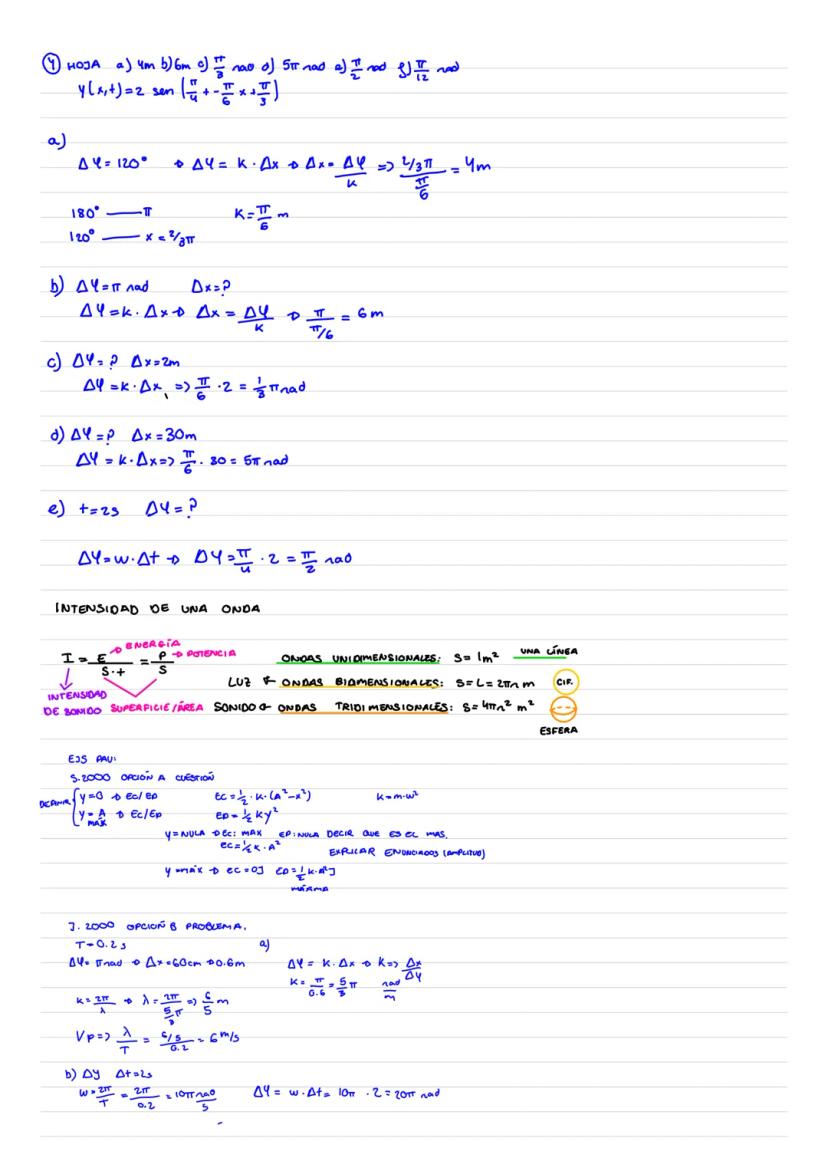 ④ HOJA a) 4m b) 6m c) π/3 rad d) 5π rad e) π/2 rad f) π/12 rad
y(x,t)=2 sen (π/4 t - π/6 x + π/3)
a)
Δφ = 120° → Δφ = K · Δx → Δx = Δφ/K => (2/3π)/(π/6) = 4m
180° — π K = π/6 m
120° — x = 2/3π
b) Δφ = π rad Δx = ?
Δφ = K · Δx → Δx = Δφ/K → π/(π/6) = 6m
c) Δφ = ? Δx = 2m
Δφ = K · Δx => π/6 · 2 = 1/3 π rad
d) Δφ = ? Δx = 30m
Δφ = K · Δx => π/6 · 30 = 5π rad
e) t = 2s Δφ = ?
Δφ = w · Δt → Δφ = π/4 · 2 = π/2 rad
INTENSIDAD DE UNA ONDA
I = E/(S·t) = P/S → ENERGÍA → POTENCIA
INTENSIDAD DE SONIDO SUPERFICIE/ÁREA
ONDAS UNIDIMENSIONALES: S = 1m² UNA LÍNEA
LUZ ONDAS BIDIMENSIONALES: S = L = 2πr m CIR.
SONIDO ONDAS TRIDIMENSIONALES: S = 4πr² m²
ESFERA
EJS PAU:
S.2000 OPCIÓN A CUESTIÓN
DEFINIR { y = 0 → EC/EP EC = 1/2 · K · (A² - x²) K = m · w²
y = A MÁX → EC/EP EP = 1/2 K y²
y = NULA → EC: MAX EP: NULA DECIR QUE ES EL MAS.
EC = 1/2 K · A² EXPLICAR ENUNCIADOS (AMPLITUD)
y = MÁX → EC = 0J EP = 1/2 K · A² J
MÁXIMA
J. 2000 OPCIÓN B PROBLEMA.
T = 0.2s a)
Δφ = π rad → Δx = 60cm → 0.6m Δφ = K · Δx → K => Δx/Δφ
K = π/0.6 = 5/3 π rad/m
K = 2π/λ → λ = 2π/(5/3 π) => 6/5 m
Vp => λ/T = (6/5)/0.2 = 6 m/s
b) Δy Δt = 2s
w = 2π/T = 2π/0.2 = 10π rad/s Δφ = w · Δt = 10π · 2 = 20π rad